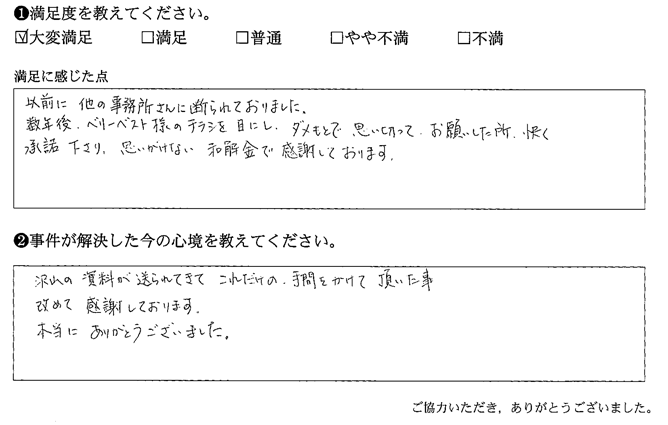 ❶満足度を教えてください。
☑大変満足 □満足 □普通 □やや不満 □不満
満足に感じた点
以前に 他の事務所さんに断られておりました。
数年後、ベリーベスト様のチラシを目にし、ダメもとで 思い切って、お願いした所、快く
承諾 下さり、思いがけない 和解金で 感謝しております。
❷事件が解決した今の心境を教えてください。
沢山の 資料が送られてきて これだけの、手間をかけて 頂いた事
改めて 感謝しております。
本当に ありがとうございました。
ご協力いただき，ありがとうございました。